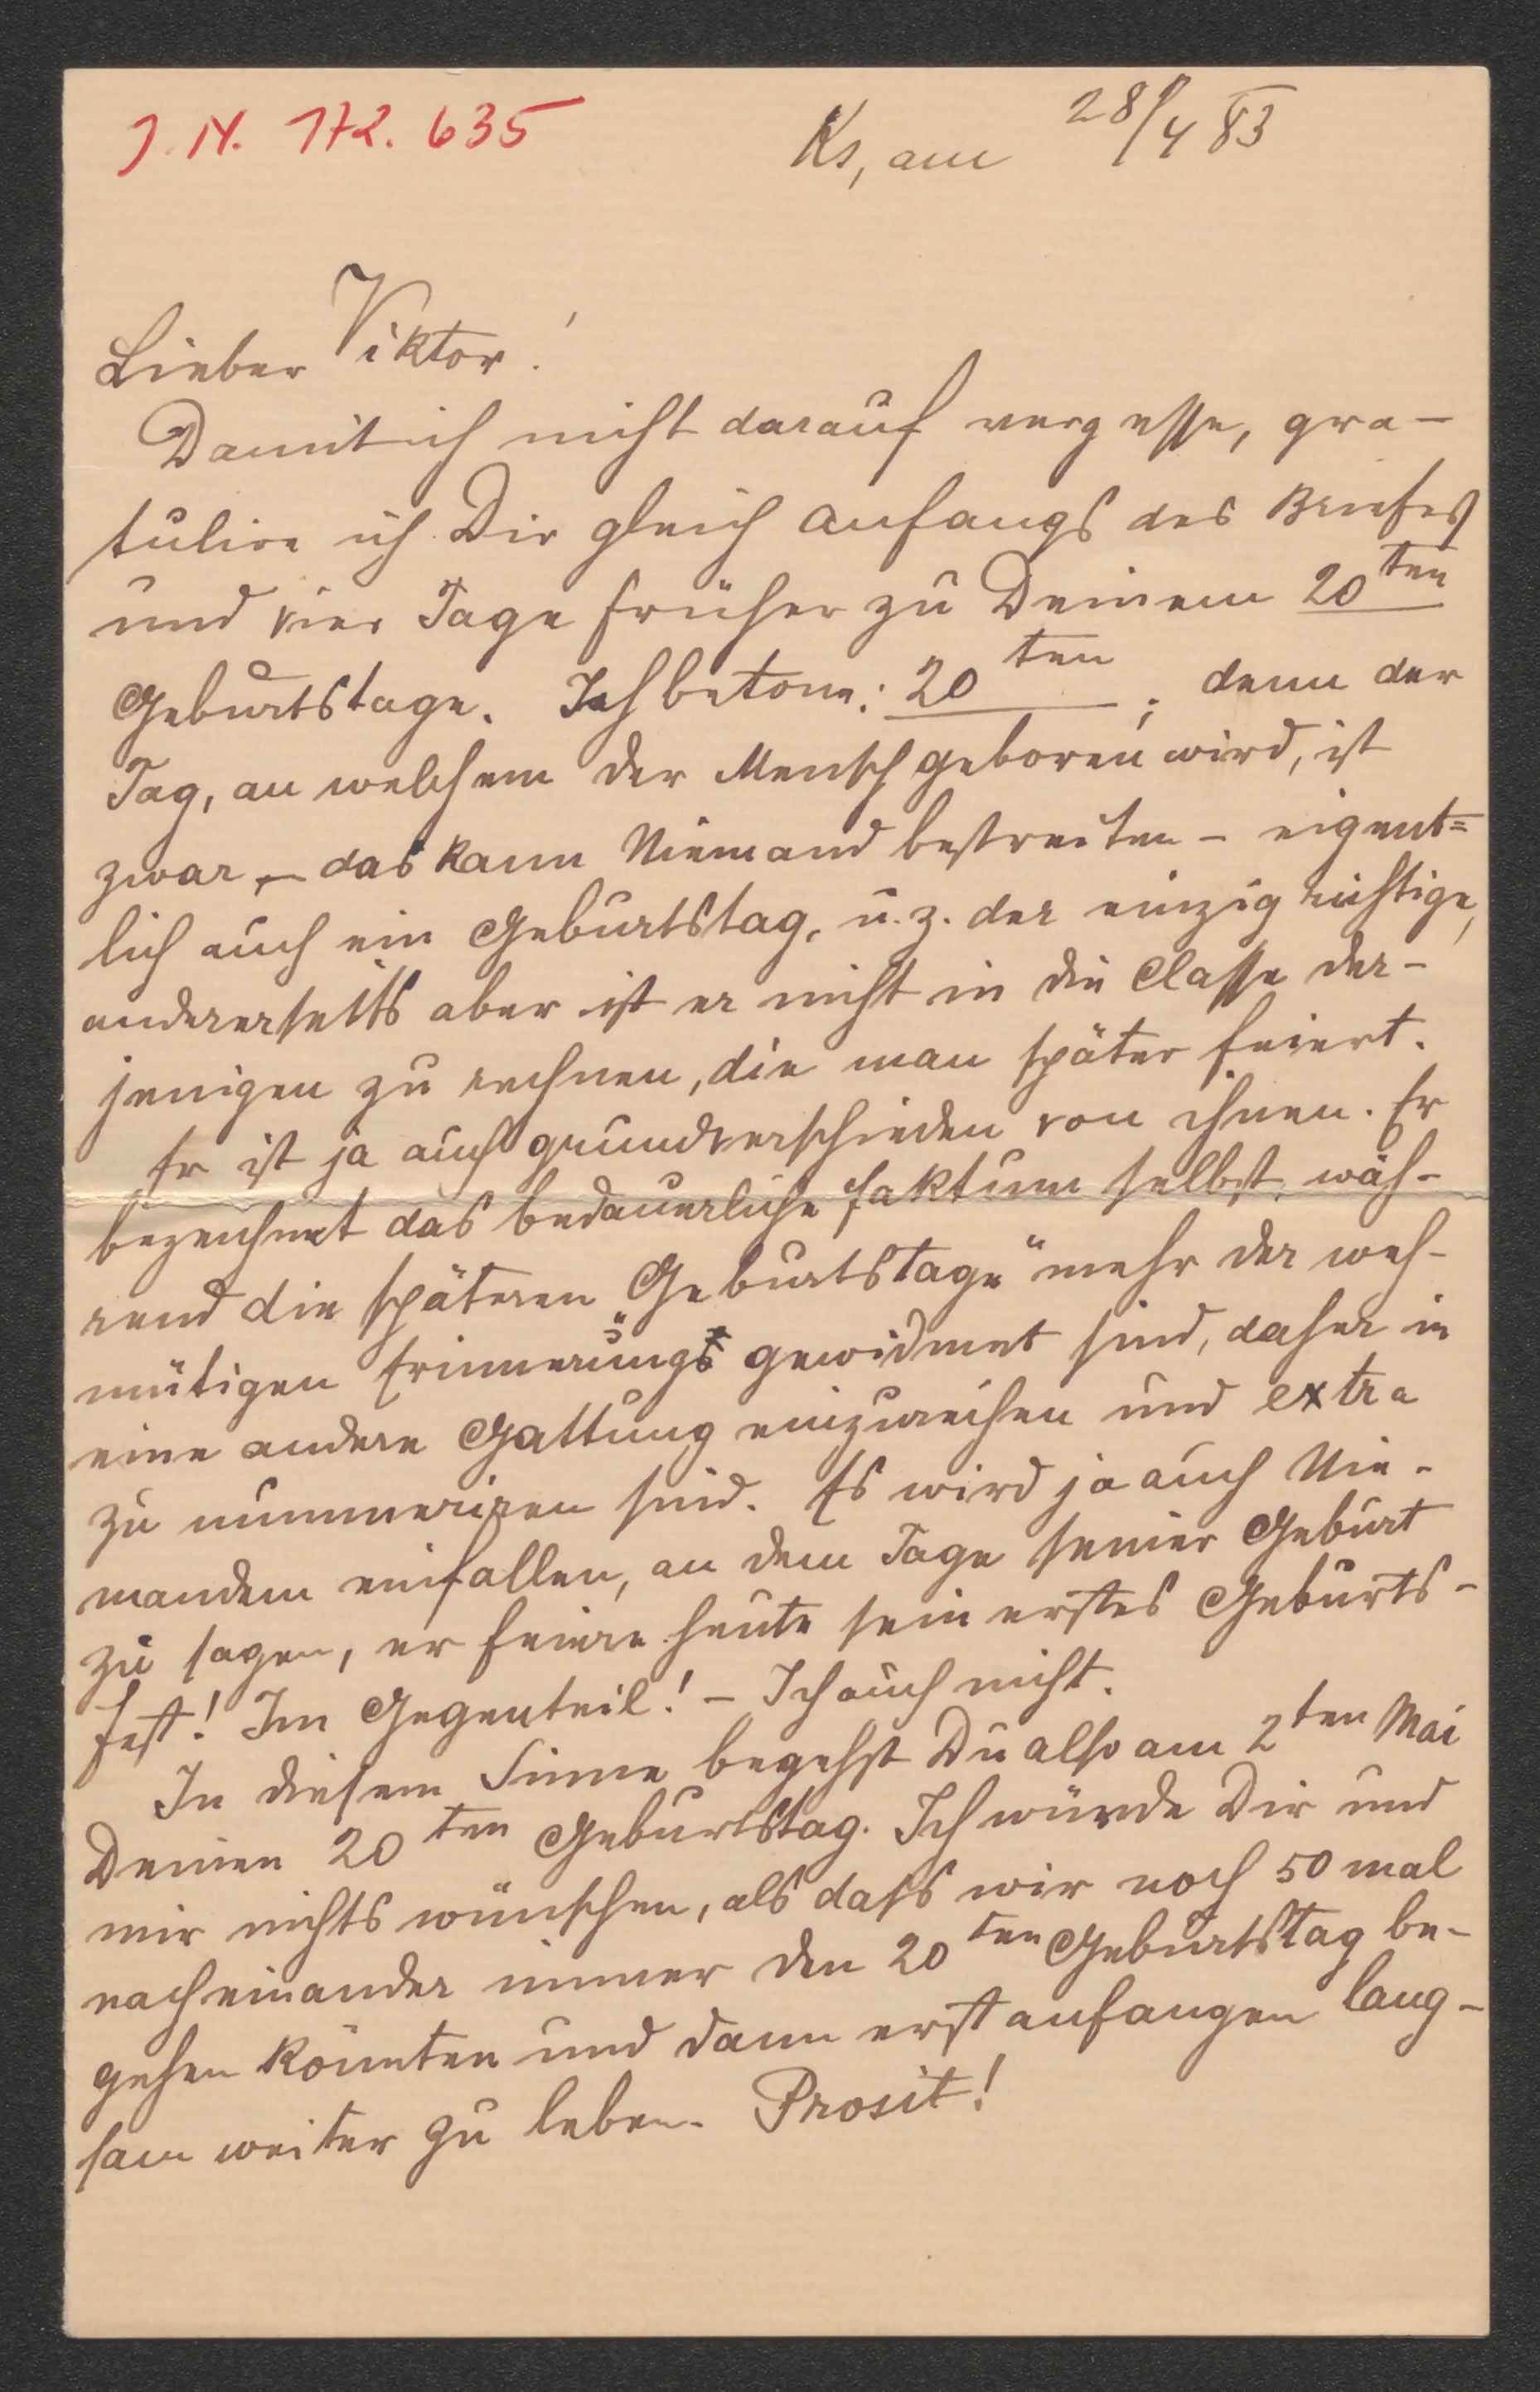 J. N. 172. 635
Ks, am 28/4 83
Lieber Viktor!
Damit ich nicht darauf vergesse, gra-
tulire ich Dir gleich anfangs des Briefes
und vier Tage früher zu Deinem 20ten
Geburtstage. Ich betone: 20ten; denn der
Tag, an welchem der Mensch geboren wird, ist
zwar – das kann Niemand bestreiten – eigent=
lich auch ein Geburtstag, u. z. der einzig richtige,
andererseits aber ist er nicht in die Classe der-
jenigen zu rechnen, die man später feiert.
Er ist ja auch grundverschieden von ihnen. Er
bezeichnet das bedauerliche Faktum selbst, wäh-
rend die späteren „Geburtstage“ mehr der weh-
mütigen Erinnerung gewidmet sind, daher in
eine andere Gattung einzureihen und extra
zu nummeriren sind. Es wird ja auch Nie-
mandem einfallen, an dem Tage seiner Geburt
zu sagen, er feiere heute sein erstes Geburts-
fest! Im Gegenteil! – Ich auch nicht.
In diesem Sinne begehst Du also am 2ten Mai
Deinen 20ten Geburtstag. Ich würde Dir und
mir nichts wünschen, als dass wir noch 50 mal
nacheinander immer den 20ten Geburtstag be-
gehen könnten und dann erst anfangen lang-
sam weiter zu leben. Prosit!